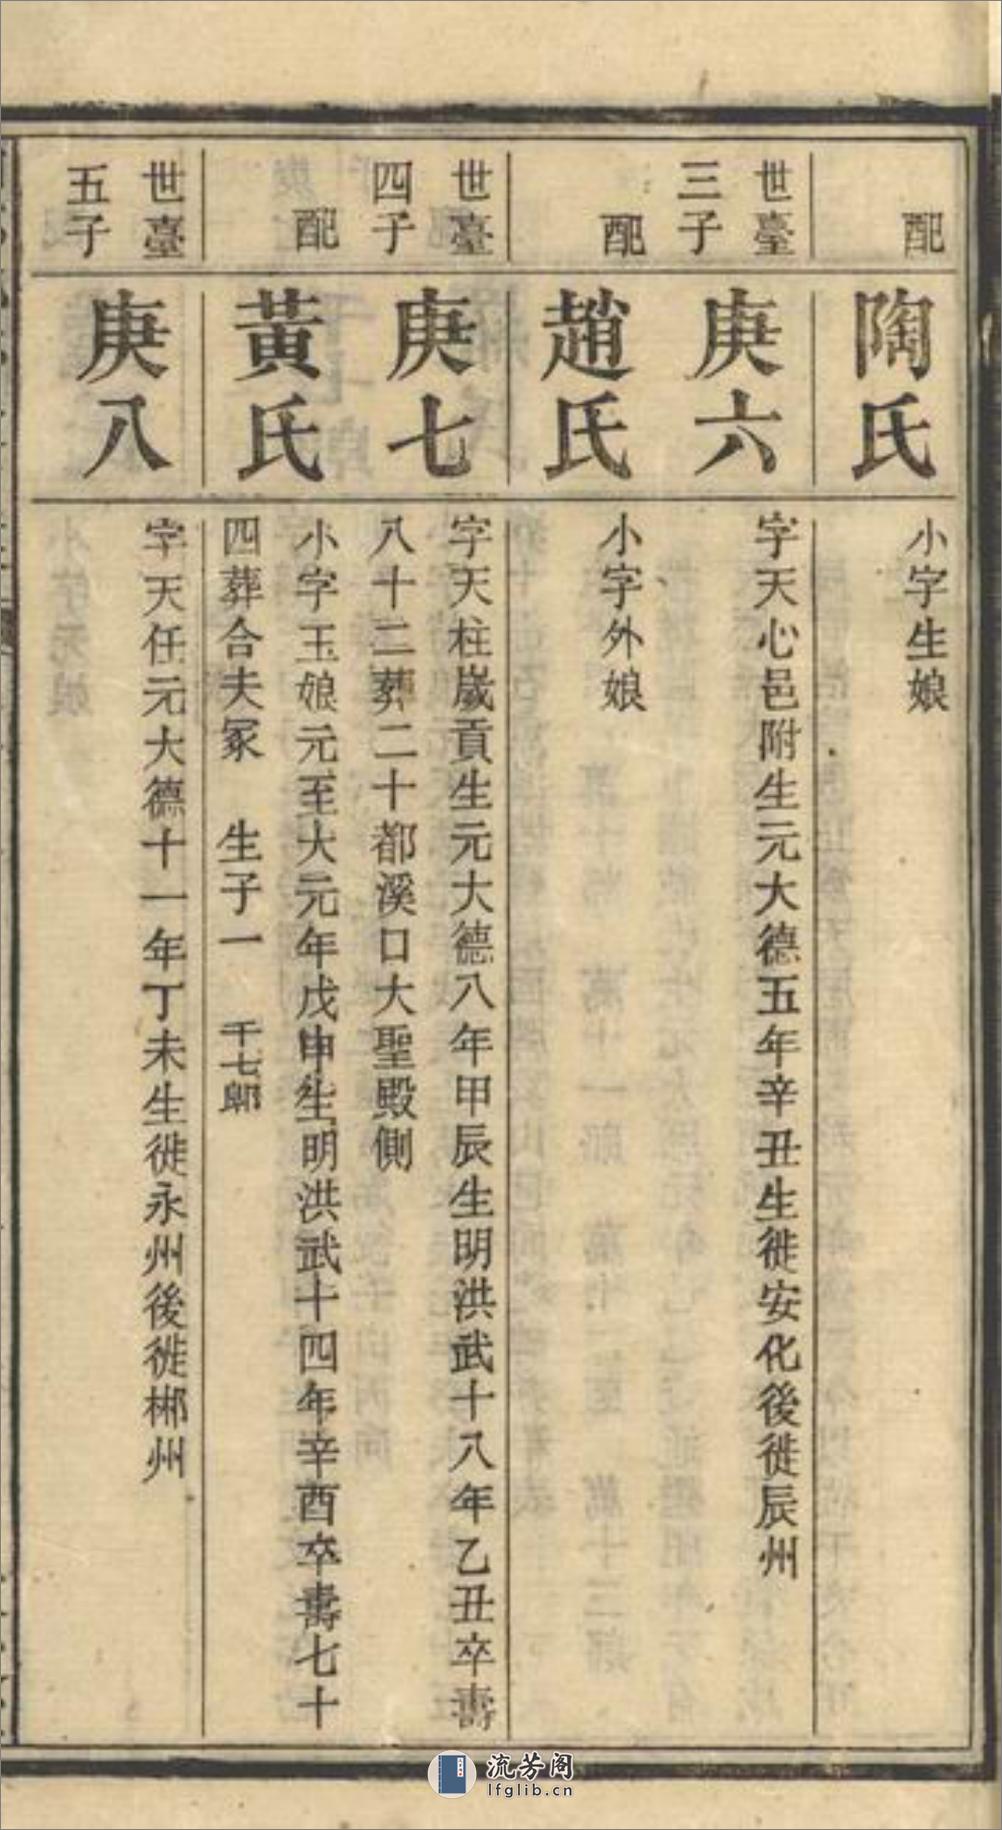 配
陶氏
小字生娘
世臺
三子
庚六
字天心邑附生元大德五年辛丑生徙安化後徙辰州
配
趙氏
小字外娘
世臺
四子
庚七
字天柱嵗貢生元大德八年甲辰生明洪武十八年乙丑卒壽
八十二葬二十都溪口大聖殿側
配
黃氏
小字玉娘元至大元年戊申生明洪武十四年辛酉卒壽七十
四葬合夫冢 生子一 千七郞
世臺
五子
庚八
字天任元大德十一年丁未生徙永州後徙郴州
流芳阁
lfglib.cn